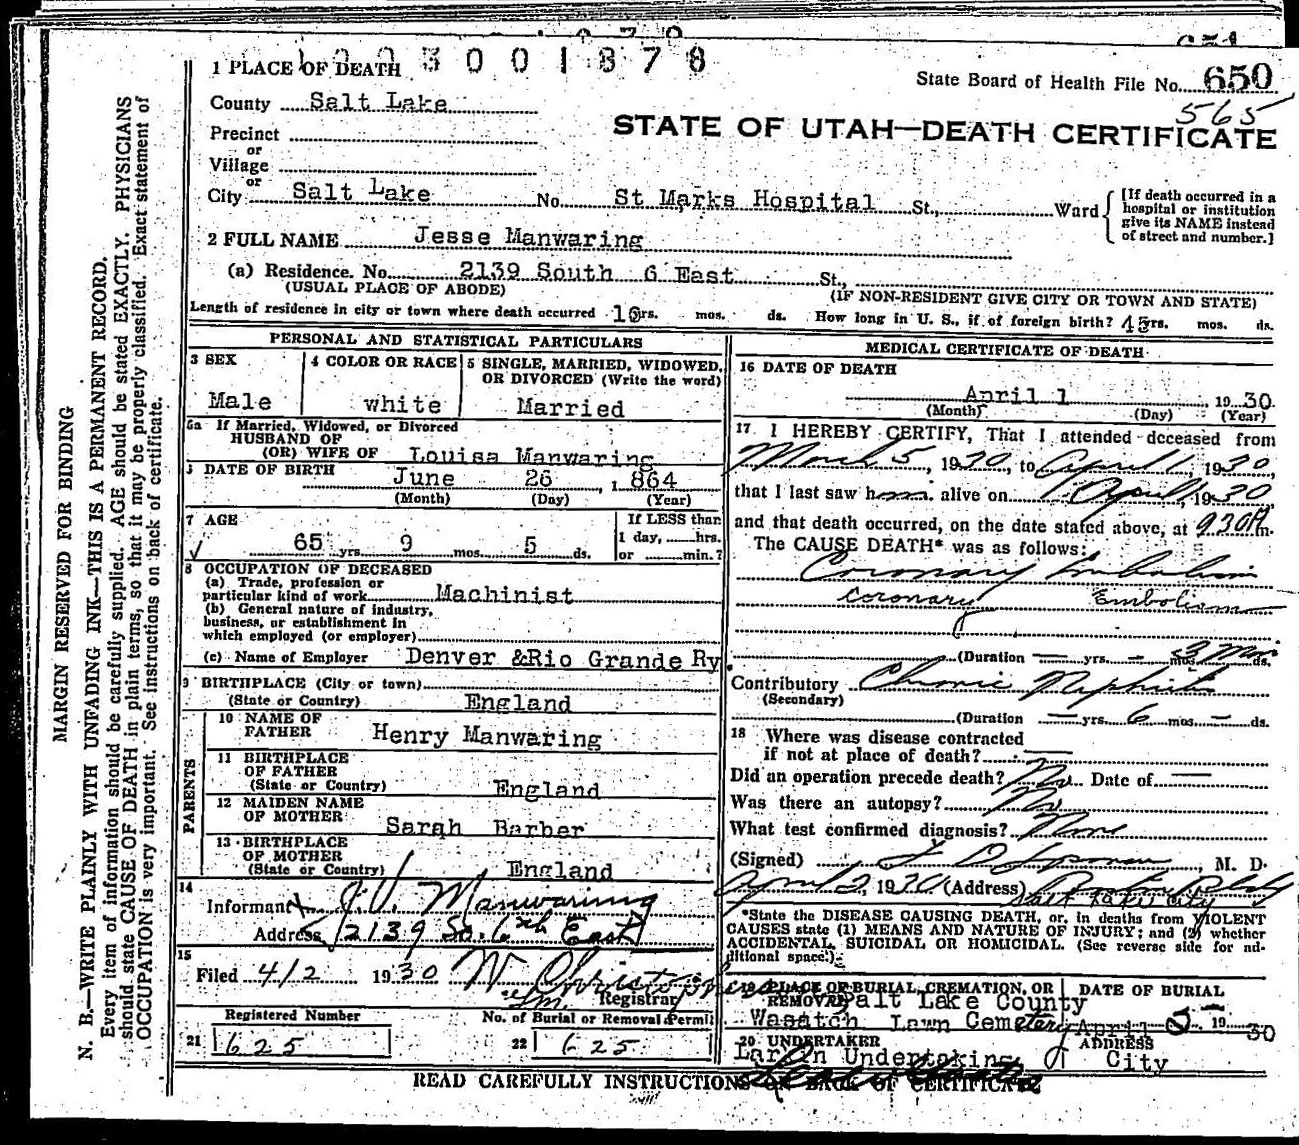 3 0 0 1 8 7 8
1 PLACE OF DEATH
State Board of Health File No. 650
565
County Salt Lake
STATE OF UTAH—DEATH CERTIFICATE
Precinct
or
Village
or
City Salt Lake No. St Marks Hospital St., Ward
[If death occurred in a
hospital or institution
give its NAME instead
of street and number.]
2 FULL NAME Jesse Manwaring
(a) Residence. No. 2139 South 6 East St.,
(USUAL PLACE OF ABODE) (IF NON-RESIDENT GIVE CITY OR TOWN AND STATE)
Length of residence in city or town where death occurred yrs. mos. ds. How long in U. S., if of foreign birth? yrs. mos. ds.
PERSONAL AND STATISTICAL PARTICULARS
3 SEX
Male
4 COLOR OR RACE
white
5 SINGLE, MARRIED, WIDOWED,
OR DIVORCED (Write the word)
Married
5a If Married, Widowed, or Divorced
HUSBAND OF
(OR) WIFE OF Louisa Manwaring
DATE OF BIRTH June 26, 1864
(Month) (Day) (Year)
7 AGE
65 yrs. 9 mos. 5 ds.
If LESS than
1 day, hrs.
or min.?
8 OCCUPATION OF DECEASED
(a) Trade, profession or
particular kind of work Machinist
(b) General nature of industry,
business, or establishment in
which employed (or employer)
(c) Name of Employer Denver & Rio Grande Ry.
9 BIRTHPLACE (City or town)
(State or Country) England
PARENTS
10 NAME OF
FATHER Henry Manwaring
11 BIRTHPLACE
OF FATHER
(State or Country) England
12 MAIDEN NAME
OF MOTHER Sarah Barber
13 BIRTHPLACE
OF MOTHER
(State or Country) England
14
Informant J. V. Manwaring
Address 2139 So. 6th East
15
Filed 4/2 1930 W Christopherson
Registrar
Registered Number
21 625
No. of Burial or Removal Permit
22 625
MEDICAL CERTIFICATE OF DEATH
16 DATE OF DEATH
April 1, 1930
(Month) (Day) (Year)
17 I HEREBY CERTIFY, That I attended deceased from
March 5, 1930, to April 1, 1930,
that I last saw h alive on April 1, 1930
and that death occurred, on the date stated above, at 930 Pm.
The CAUSE DEATH* was as follows:
Coronary Embolism
Coronary Embolism
(Duration — yrs. — mos. ds.
Contributory Chronic Nephritis
(Secondary)
(Duration — yrs. 6 mos. — ds.
18 Where was disease contracted
if not at place of death? —
Did an operation precede death? No Date of —
Was there an autopsy? No
What test confirmed diagnosis? None
(Signed) , M. D.
April 2, 1930 (Address)
Salt Lake City
*State the DISEASE CAUSING DEATH, or, in deaths from VIOLENT
CAUSES state (1) MEANS AND NATURE OF INJURY; and (2) whether
ACCIDENTAL, SUICIDAL OR HOMICIDAL. (See reverse side for ad-
ditional space.)
19 PLACE OF BURIAL, CREMATION, OR
REMOVAL Salt Lake County
Wasatch Lawn Cemetery
DATE OF BURIAL
April 5 1930
20 UNDERTAKER
Larkin Undertaking
ADDRESS
City
READ CAREFULLY INSTRUCTIONS ON BACK OF CERTIFICATE
MARGIN RESERVED FOR BINDING
N. B.—WRITE PLAINLY WITH UNFADING INK—THIS IS A PERMANENT RECORD.
Every item of information should be carefully supplied. AGE should be stated EXACTLY. PHYSICIANS
should state CAUSE OF DEATH in plain terms, so that it may be properly classified. Exact statement of
OCCUPATION is very important. See instructions on back of certificate.